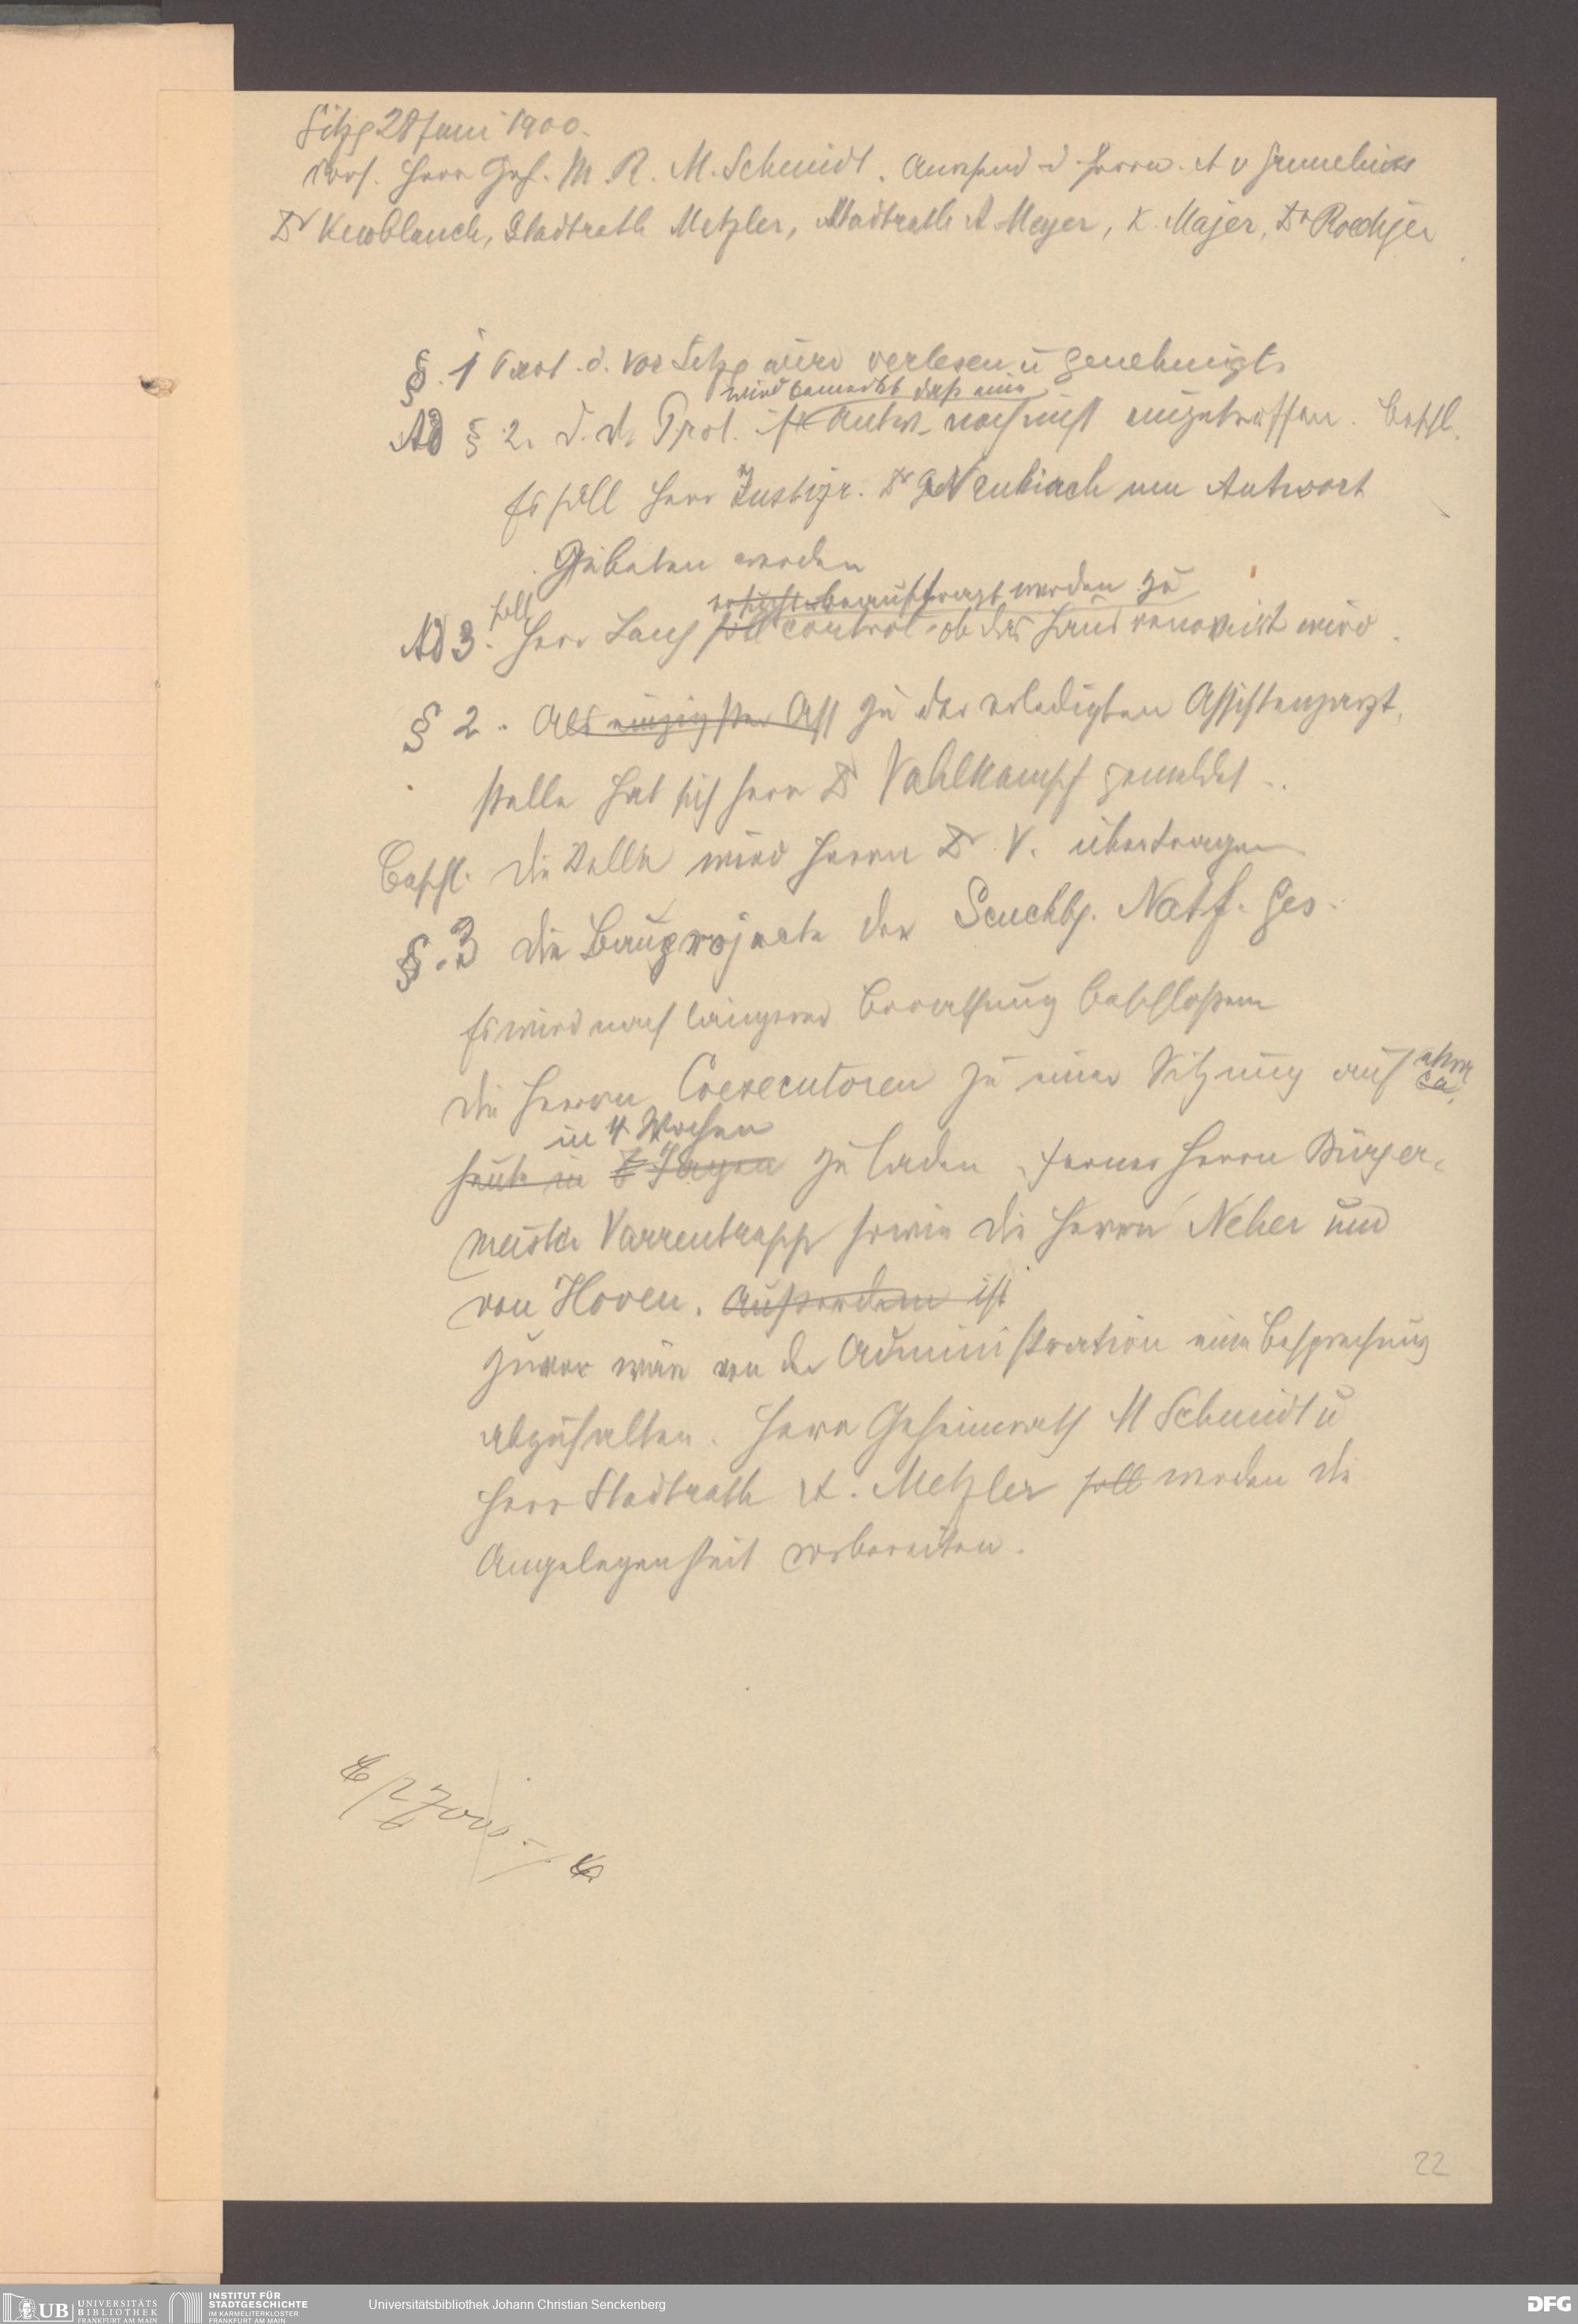 Sitzg 28 Juni 1900.
Vors. Herr Geh. M. R. M. Schmidt. Anwesend d. Herrn. A v
Dr Knoblauch, Stadtrath Metzler, Stadtrath A. Meyer, K. Majer, Dr Roediger
§. 1 Prot. d. vor Sitzg wird verlesen u genehmigt.
wird bemerkt daß eine
Ad § 2. d. Prot. ist Antw. noch nicht eingetroffen. Beschl.
Es soll Herr Justizr. Dr um Antwort
Gebeten werden
soll
ersucht beauftragt werden zu
Ad 3. Herr Lauf soll control. ob das Haus renovirt wird.
§ 2. Als einzigster Ass zu der erledigten Assistenzarzt,
stelle hat sich Herr Dr Vahlkampf gemeldet.
Beschl. Die Stelle wird Herrn Dr. V. übertragen
§. 3 Die Bauprojecte der Senckbg. Natf. Ges.
Es wird nach längerer Berathung beschloßen
die Herren Coexecutoren zu einer Sitzung auf etwa
ca.
in 4 Wochen
heute in 8 Tagen zu laden ferner Herrn Bürger-
meister Varrentrapp sowie die Herrn Neher und
von Hoven. Außerdem ist
zuvor wäre von der Administration eine Besprechung
abzuhalten. Herr Geheimrath M Schmidt u
Herr Stadtrath A. Metzler soll werden die
Angelegenheit vorbereiten.
22
UB UNIVERSITÄTS BIBLIOTHEK FRANKFURT AM MAIN
INSTITUT FÜR STADTGESCHICHTE IM KARMELITERKLOSTER FRANKFURT AM MAIN
Universitätsbibliothek Johann Christian Senckenberg
DFG